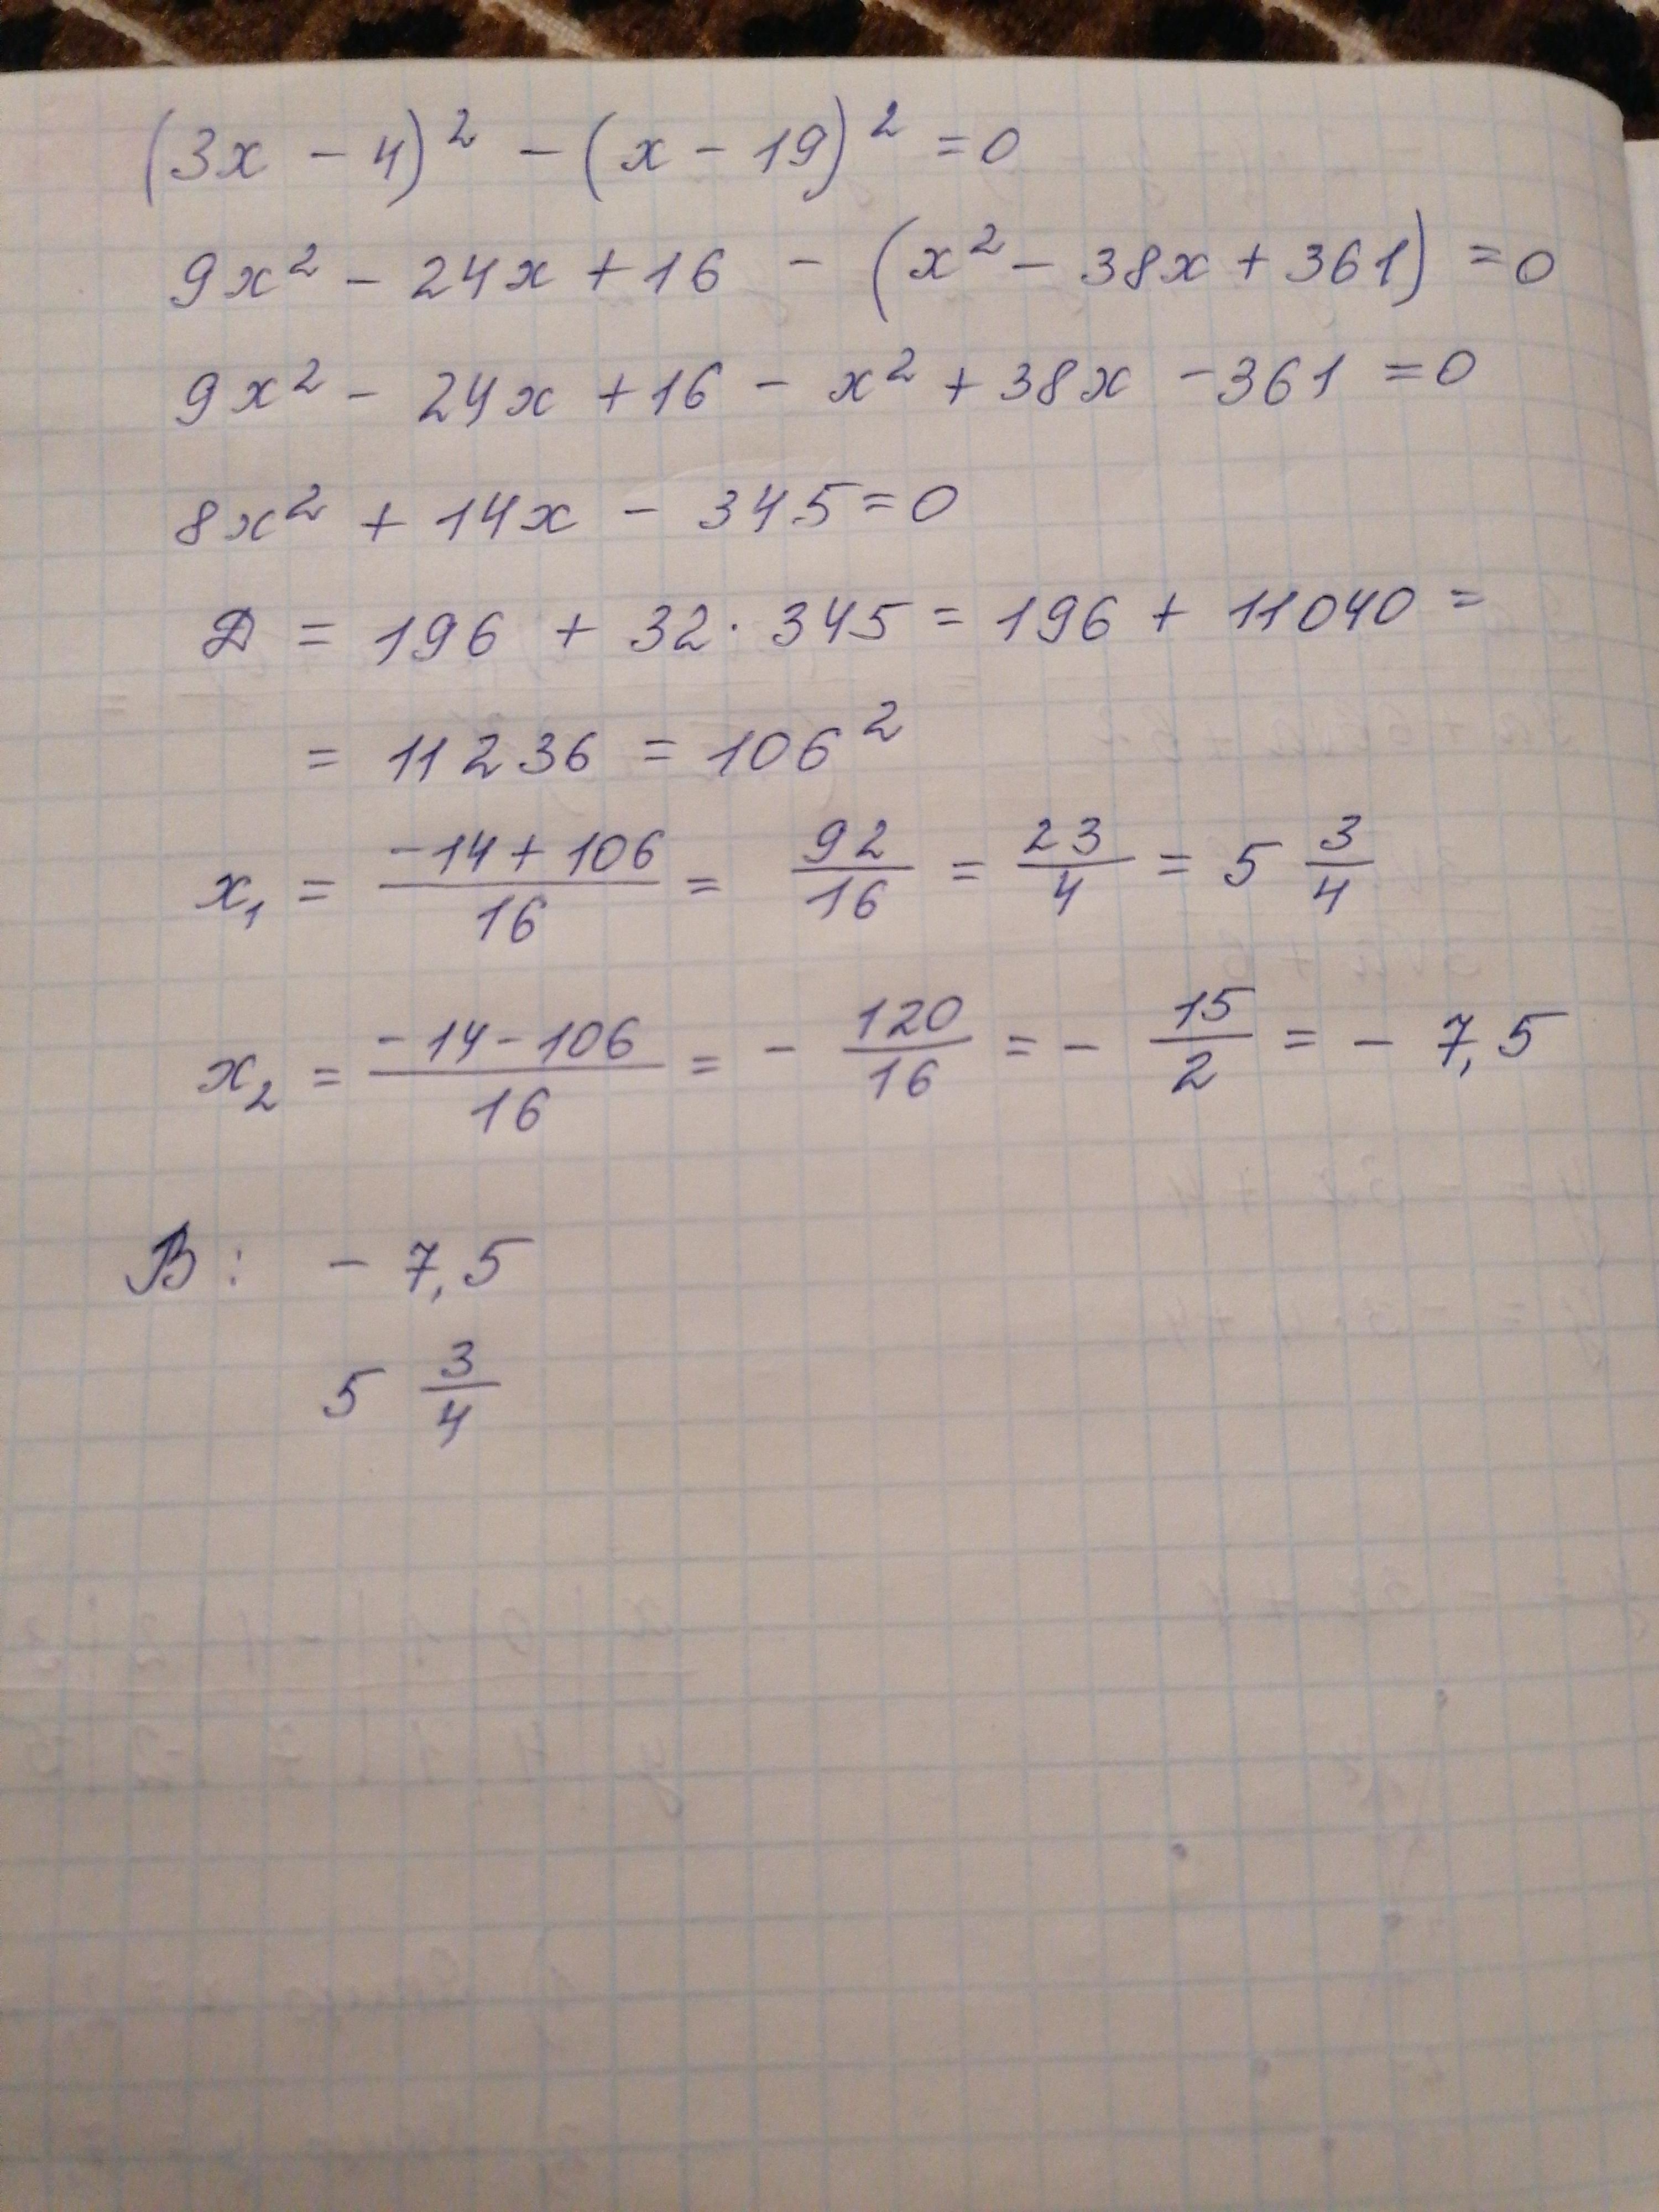 (3x - 4)² - (x - 19)² = 0
9x² - 24x + 16 - (x² - 38x + 361) = 0
9x² - 24x + 16 - x² + 38x - 361 = 0
8x² + 14x - 345 = 0
D = 196 + 32 · 345 = 196 + 11040 =
= 11236 = 106²
x₁ = (-14 + 106)/16 = 92/16 = 23/4 = 5 3/4
x₂ = (-14 - 106)/16 = - 120/16 = - 15/2 = - 7,5
В: - 7,5
5 3/4